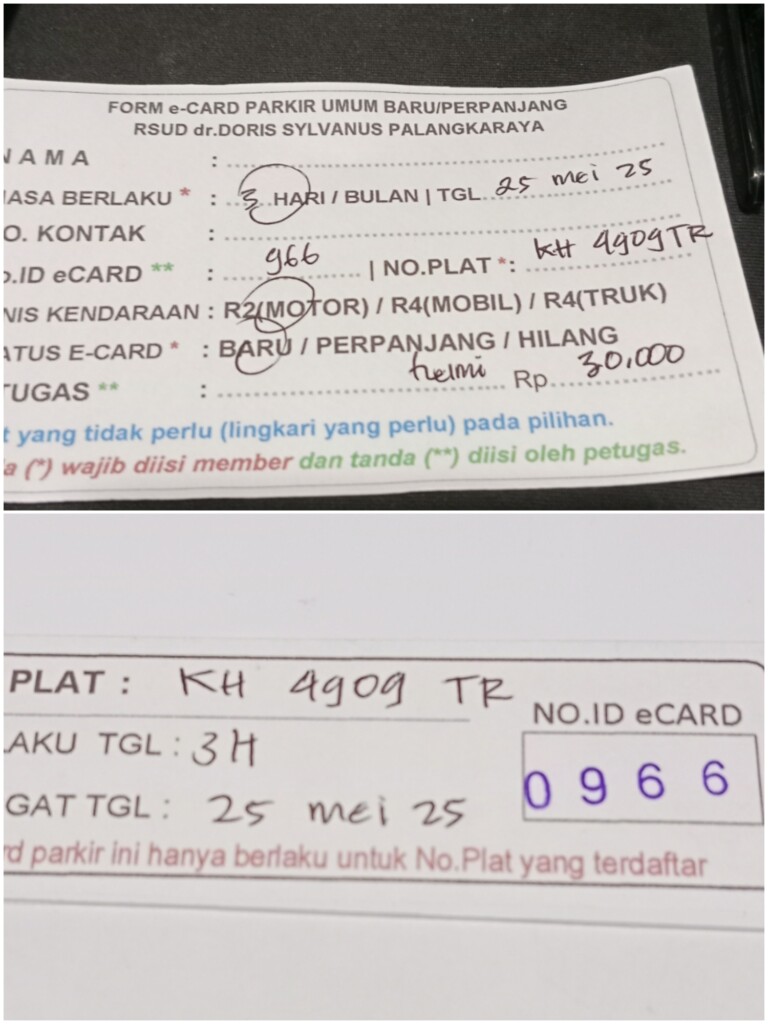 FORM e-CARD PARKIR UMUM BARU/PERPANJANG
RSUD dr.DORIS SYLVANUS PALANGKARAYA
NAMA :
ASA BERLAKU * : 3 HARI / BULAN | TGL 25 mei 25
O. KONTAK :
o.ID eCARD ** : 966 | NO.PLAT *: KH 4909 TR
NIS KENDARAAN : R2(MOTOR) / R4(MOBIL) / R4(TRUK)
ATUS E-CARD * : BARU / PERPANJANG / HILANG
TUGAS ** : helmi Rp. 30.000
t yang tidak perlu (lingkari yang perlu) pada pilihan.
a (*) wajib diisi member dan tanda (**) diisi oleh petugas.
PLAT : KH 4909 TR
NO.ID eCARD
LAKU TGL : 3H
0966
GAT TGL : 25 mei 25
rd parkir ini hanya berlaku untuk No.Plat yang terdaftar